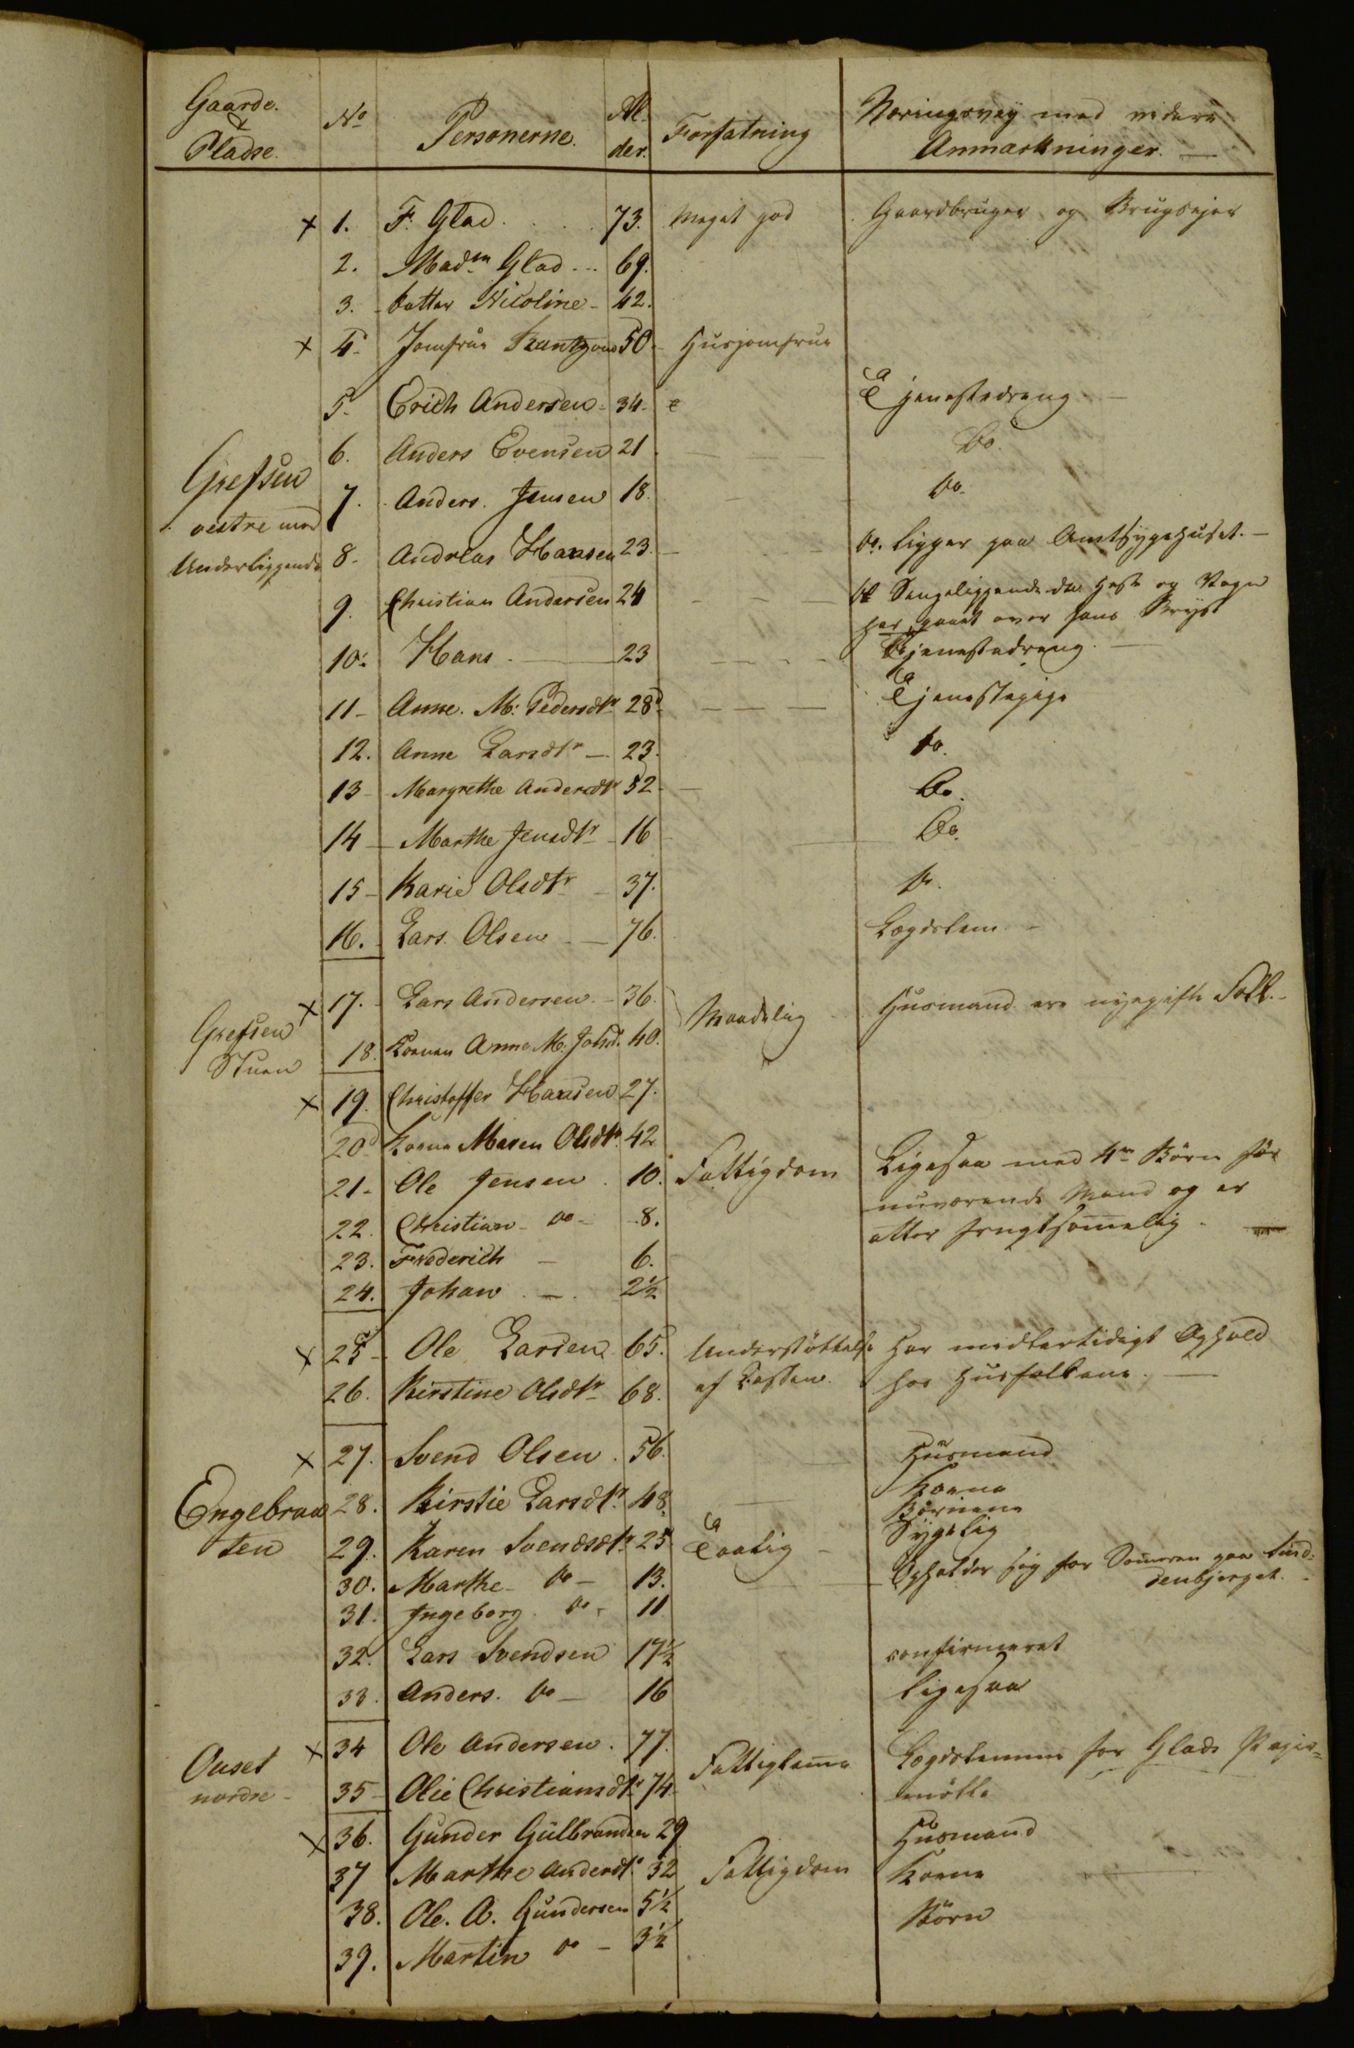 Gaarde. & Pladse. No Personerne. Al-der. Forfatning Næringsvey med videre Anmærkninger.
x 1. F. Glad 73. Meget god Gaardbruger og Brugsejer
2. Madm Glad 69.
3. Datter Nicoline 42.
x 4. Jomfrue 50 Husjomfrue
5. Erich Andersen 34 Tjenestedreng
6. Anders Evensen 21 Do.
Grefsen vestre med Underliggende
7. Anders Jensen 18 Do.
8. Andreas Hansen 23 Do. ligger paa Amtsygehuset.
9. Christian Andersen 24 Do Sengeliggende da Hest og Vogn har gaaet over hans Bryst
10. Hans 23 Tjenestedreng
11 Anne M. Pedersdtr 28 Tjenestepige
12. Anne Larsdtr 23. Do.
13 Margrethe Andersdtr 52 Do.
14 Marthe Jensdtr 16 Do.
15 Karie Olsdtr 37. Do.
16. Lars Olsen 76. Lægdslem
x 17. Lars Andersen 36. Maadelig Husmand ere nygifte Folk.
Grefsen Stuen
18. Konen Anne M. Johsd. 40.
x 19. Christoffer Hansen 27.
20 Kone Maren Olsdtr 42 Fattigdom Ligesaa med 4re Børn før
21 Ole Jensen 10. nuværende Mand og er
22. Christian Do 8. atter frugtsommelig
23. Frederich 6.
24. Johan 2½
x 25 Ole Larsen 65. Understøttelse Har midlertidigt Ophold
26. Kirstine Olsdtr 68. af Kassen. hos Husfolkene.
x 27. Svend Olsen 56. Husmand
Engebraaten
28. Kirstie Larsdtr 48. Kone
Børnene
29. Karen Svendsdtr 25 Taalig Sygelig
30. Marthe Do 13. Opholder sig for Sommeren paa Lind-denbjerget.
31. Ingeborg Do 11
32. Lars Svendsen 17½ confirmeret
33. Anders. Do 16 ligesaa
x 34 Ole Andersen 77. Fattiglemme Lægdslemme for Glads Papir-
Ouset nordre
35 Olie Christiansdtr 74. mølle
x 36. Gunder Gulbrandsen 29 Husmand
37 Marthe Andersdt. 32 Fattigdom Kone
38. Ole A. Gundersen 5½ Børn
39. Martin Do 3½